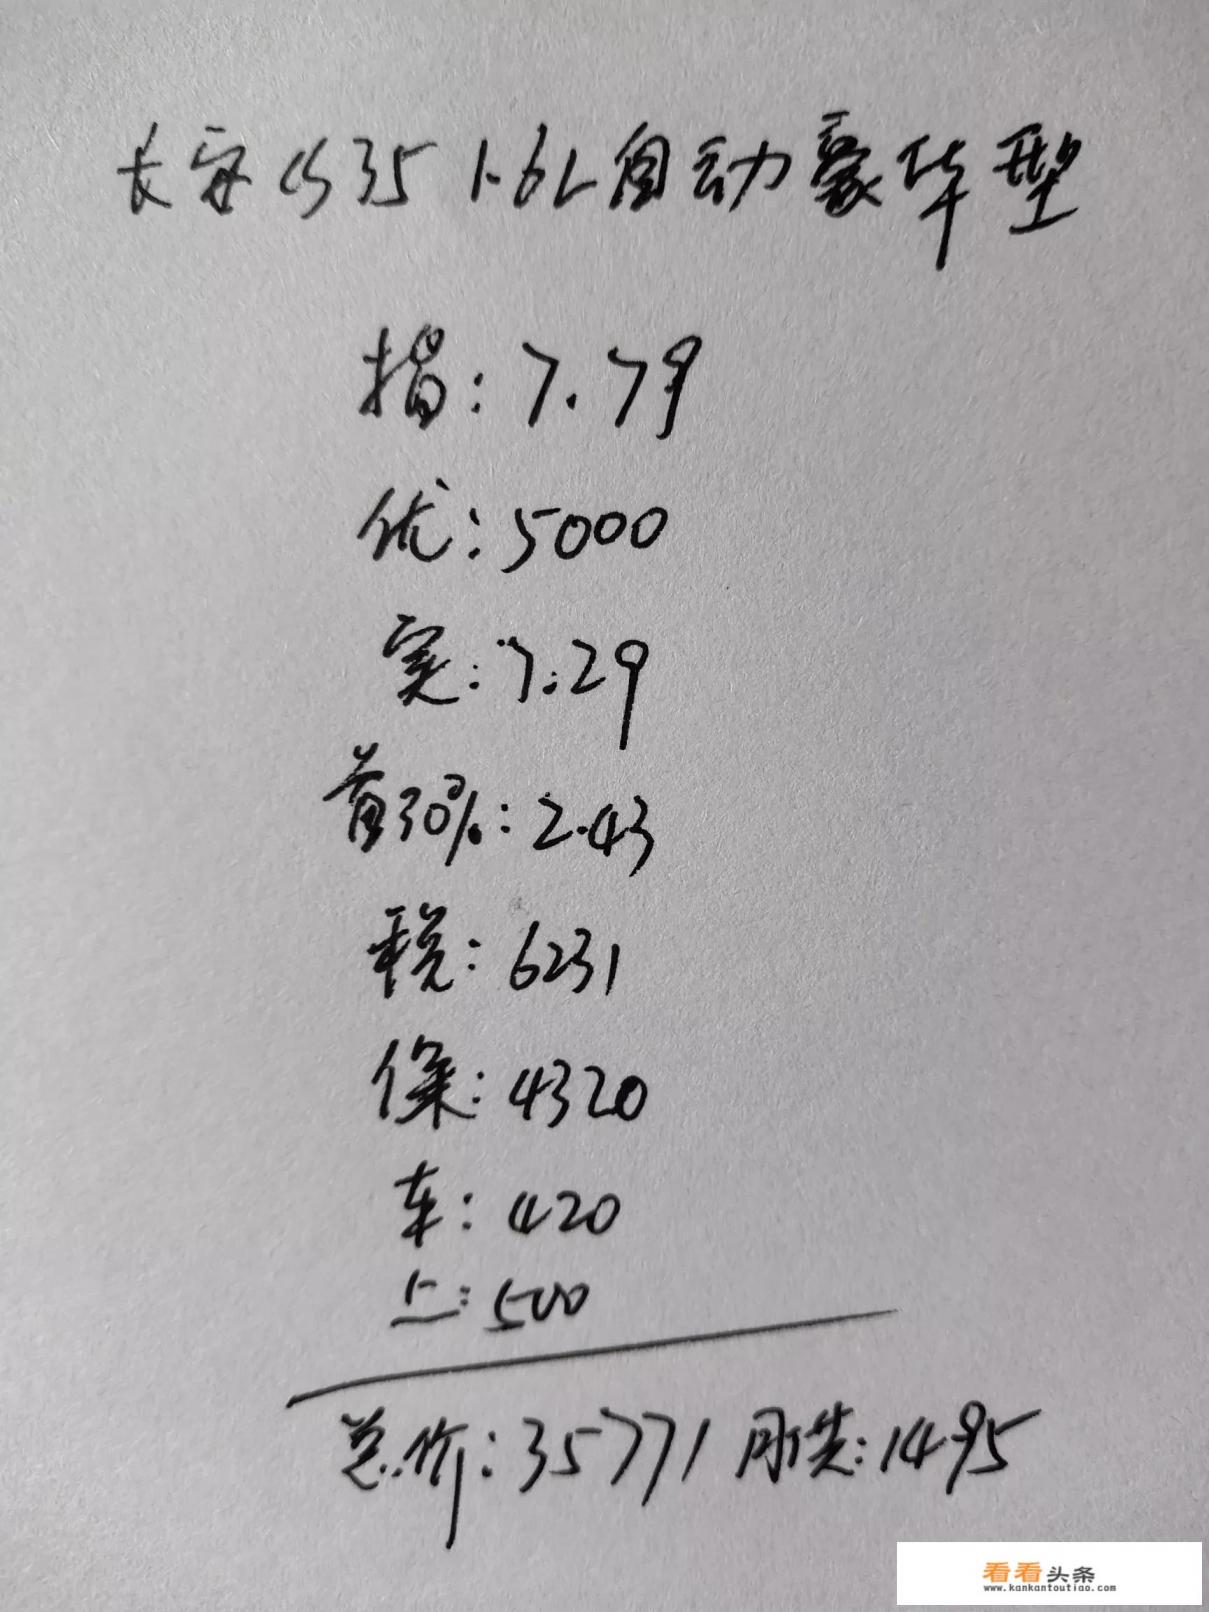 长安CS35 1.6L自动豪华型
指:7.79
优:5000
实:7.29
首30%:2.43
税:6231
保:4320
车:420
上:500
总价:35771 月供:1495
看看头条
www.kankantoutiao.com